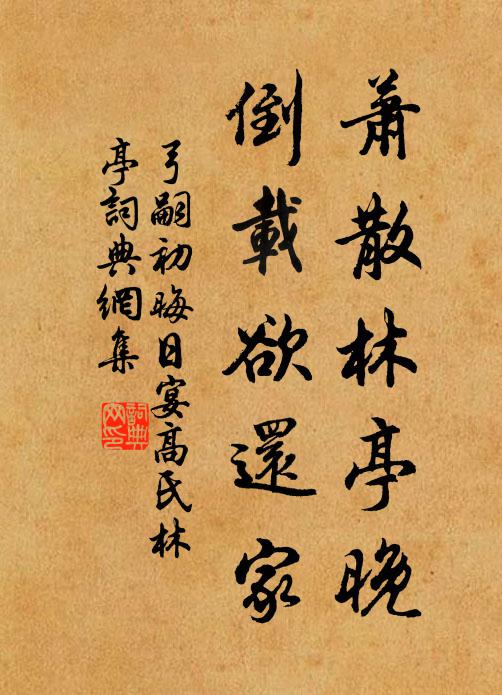 蕭散林亭晚
倒載欲還家
弓嗣初晦日宴高氏林
亭詞典網集
詞典
网印